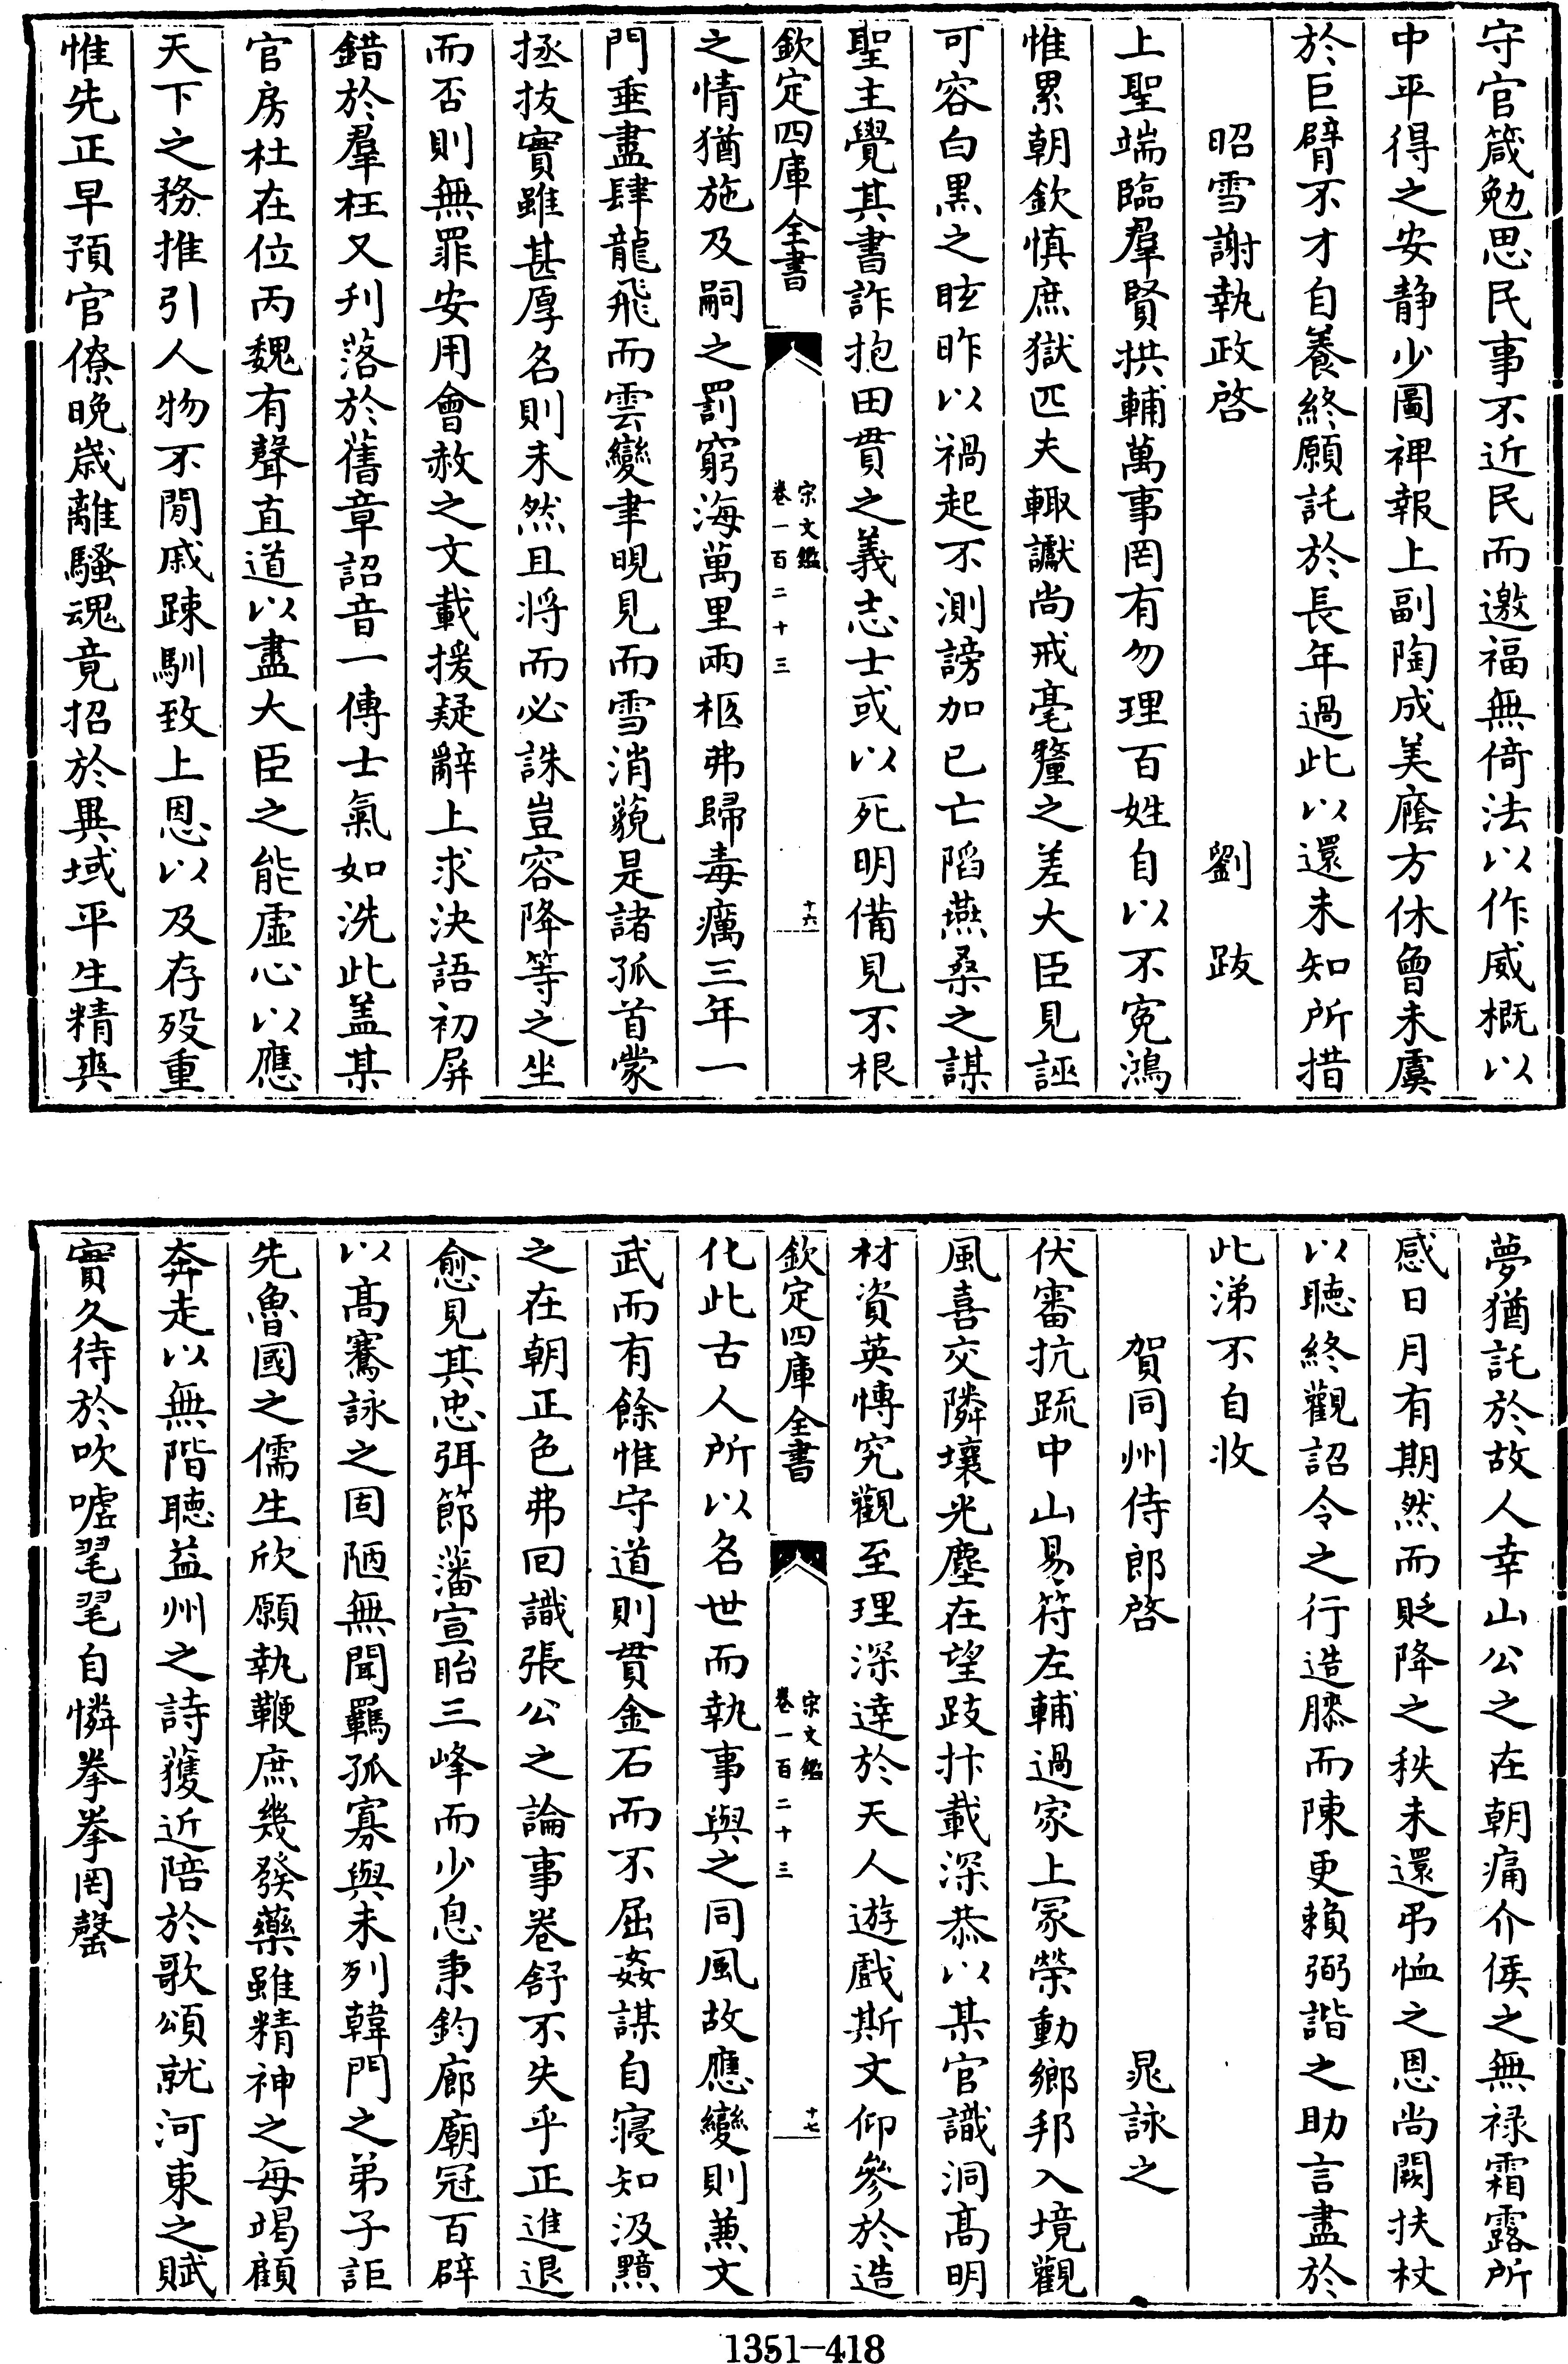 守官箴勉思民事不近民而邀福無倚法以作威概以
中平得之安静少圖裨報上副陶成美廕方休曾未虞
於巨臂不才自養終願託於長年過此以還未知所措
昭雪謝執政啓　劉跂
上聖端臨羣賢拱輔萬事罔有勿理百姓自以不寃鴻
惟累朝欽慎庶獄匹夫輙讞尚戒毫釐之差大臣見誣
可容白黒之眩昨以禍起不測謗加已亡䧟燕桑之謀
聖主覺其書詐抱田貫之義志士或以死明備見不根
欽定四庫全書
宋文鑑
卷一百二十三
十六
之情猶施及嗣之罰窮海萬里兩柩弗歸毒癘三年一
門垂盡肆龍飛而雲變聿晛見而雪消藐是諸孤首蒙
拯拔實雖甚厚名則未然且将而必誅豈容降等之坐
而否則無罪安用會赦之文載援疑辭上求決語初屏
錯於羣枉又刋落於舊章詔音一傳士氣如洗此盖某
官房杜在位丙魏有聲直道以盡大臣之能虛心以應
天下之務推引人物不間戚踈馴致上恩以及存殁重
惟先正早預官僚晚歲離騷魂竟招於異域平生精爽
夢猶託於故人幸山公之在朝痛介侯之無禄霜露所
感日月有期然而貶降之秩未還弔恤之恩尚闕扶杖
以聽終觀詔令之行造膝而陳更賴弼諧之助言盡於
此涕不自收
賀同州侍郎啓　晁詠之
伏審抗疏中山易符左輔過家上冢榮動鄉邦入境觀
風喜交隣壤光塵在望跂抃載深恭以某官識洞髙明
材資英博究觀至理深達於天人遊戲斯文仰參於造
欽定四庫全書
宋文鑑
卷一百二十三
十七
化此古人所以名世而執事與之同風故應變則兼文
武而有餘惟守道則貫金石而不屈姦謀自寝知汲黯
之在朝正色弗回識張公之論事卷舒不失乎正進退
愈見其忠弭節藩宣眙三峰而少息秉鈞廊廟冠百辟
以髙騫詠之固陋無聞羈孤寡與未列韓門之弟子詎
先魯國之儒生欣願執鞭庶幾發藥雖精神之每竭顧
奔走以無階聽益州之詩獲近陪於歌頌就河東之賦
實久待於吹噓毣毣自憐拳拳罔罄
1351-418